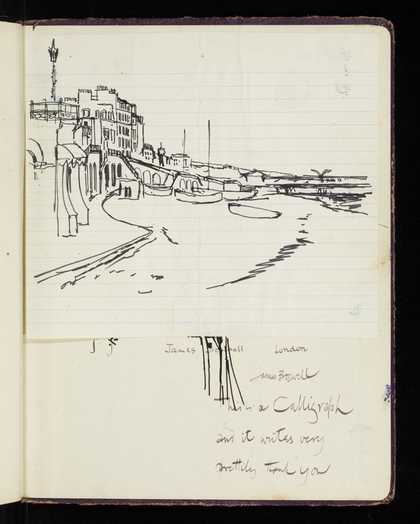 James Boswell London
James Boswell
This is a Calligraph
and it writes very
prettily Thank you